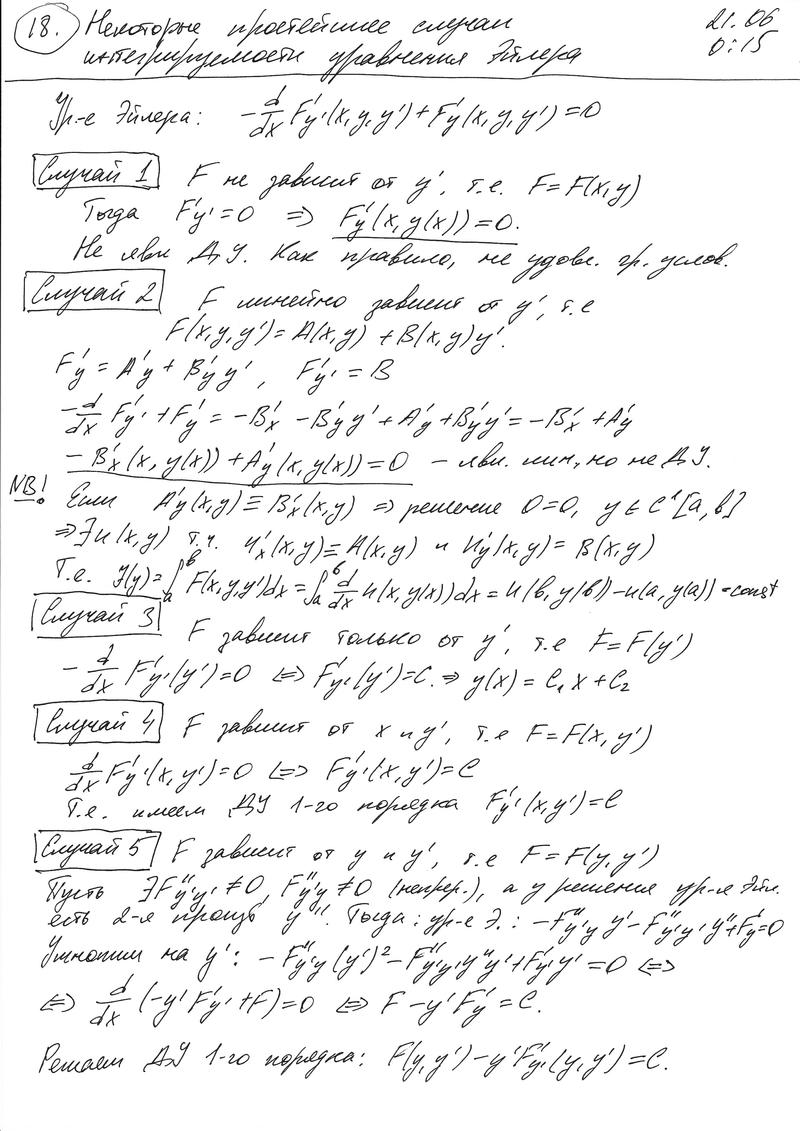 18. Некоторые простейшие случаи 21.06
интегрируемости уравнения Эйлера 0:15
Ур-е Эйлера: -d/dx F'y'(x, y, y') + F'y(x, y, y') = 0
Случай 1 F не зависит от y', т.е. F = F(x, y)
Тогда F'y' = 0 => F'y(x, y(x)) = 0.
Не явл ДУ. Как правило, не удовл. гр. услов.
Случай 2 F линейно зависит от y', т.е
F(x, y, y') = A(x, y) + B(x, y)y'.
F'y = A'y + B'y y', F'y' = B
-d/dx F'y' + F'y = -B'x - B'y y' + A'y + B'y y' = -B'x + A'y
-B'x(x, y(x)) + A'y(x, y(x)) = 0 - явл. лин, но не ДУ.
NB! Если A'y(x, y) ≡ B'x(x, y) => решение 0=0, y ∈ C¹[a, b]
=> ∃u(x, y) т.ч. u'x(x, y) ≡ A(x, y) и u'y(x, y) = B(x, y)
Т.е. J(y) = ∫ₐᵇ F(x, y, y')dx = ∫ₐᵇ d/dx u(x, y(x))dx = u(b, y(b)) - u(a, y(a)) = const
Случай 3 F зависит только от y', т.е F = F(y')
-d/dx F'y'(y') = 0 <=> F'y'(y') = C. => y(x) = C₁x + C₂
Случай 4 F зависит от x и y', т.е F = F(x, y')
d/dx F'y'(x, y') = 0 <=> F'y'(x, y') = C
Т.е. имеем ДУ 1-го порядка F'y'(x, y') = C
Случай 5 F зависит от y и y', т.е F = F(y, y')
Пусть ∃F''y'y' ≠ 0, F''y'y ≠ 0 (непрер.), а у решения ур-я Эйл.
есть 2-я произв y''. Тогда: ур-е Э.: -F''y'y y' - F''y'y' y'' + F'y = 0
Умножим на y': -F''y'y (y')² - F''y'y' y''y' + F'y y' = 0 <=>
<=> d/dx (-y'F'y' + F) = 0 <=> F - y'F'y' = C.
Решаем ДУ 1-го порядка: F(y, y') - y'F'y'(y, y') = C.